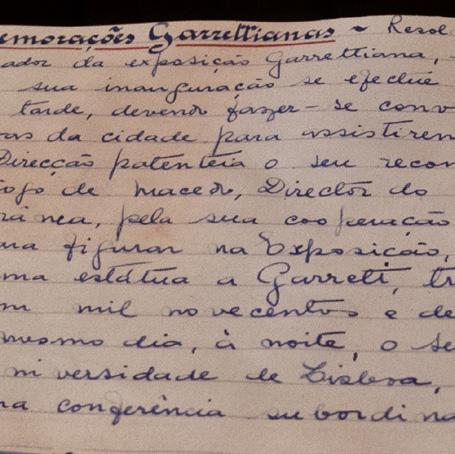 emorações Garrettianas ~ Resol
ador da exposição Garrettiana,
sua inauguração se efectue
tarde, devendo fazer-se conv
vas da cidade para assistirem
Direcção patenteia o seu recon
ogo de Macedo, Director do
rânea, pela sua cooperação
ra figurar na Exposição,
ma estátua a Garrett, tr
m mil novecentos e de
mesmo dia, à noite, o se
niversidade de Lisboa,
na conferência subordina